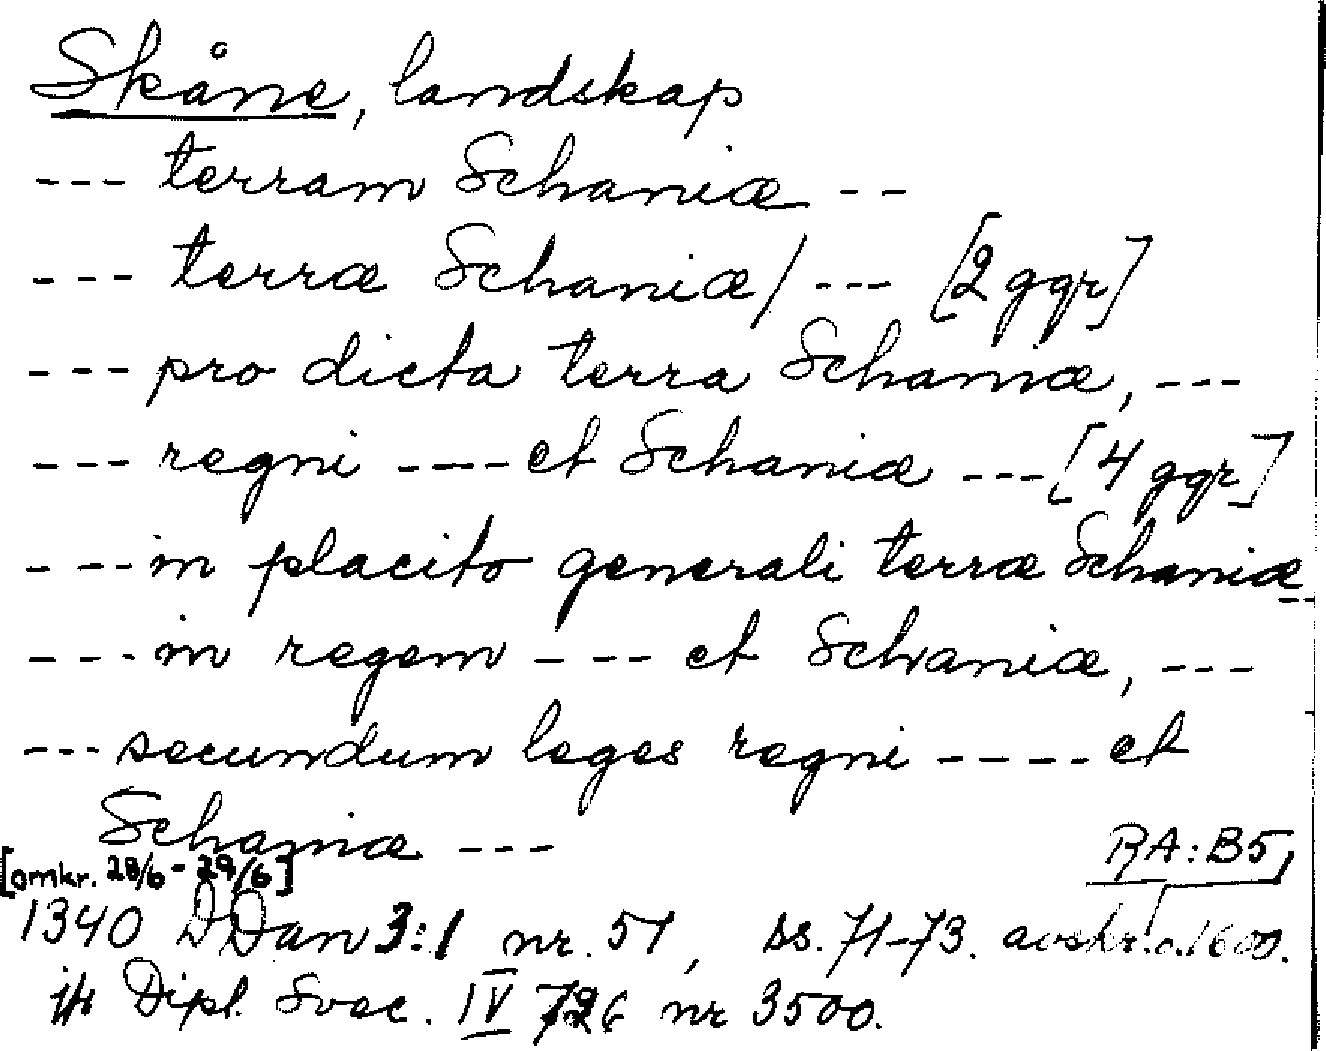 Skåne, landskap
--- terram Schaniæ --
--- terræ Schaniæ/ --- [2 ggr]
--- pro dicta terra Schaniæ, ---
--- regni ---- et Schaniæ --- [4 ggr]
--- in placito generali terræ Schaniæ --
--- in regem --- et Schaniæ, ---
--- secundum leges regni ---- et
Schaniæ ---
RA: B5,
[omkr. 28/6 - 29/6]
1340 DDan 3:1 nr. 57, ss. 71-73. avskr. o. 1600.
jfr Dipl. Svec. IV 726 nr 3500.